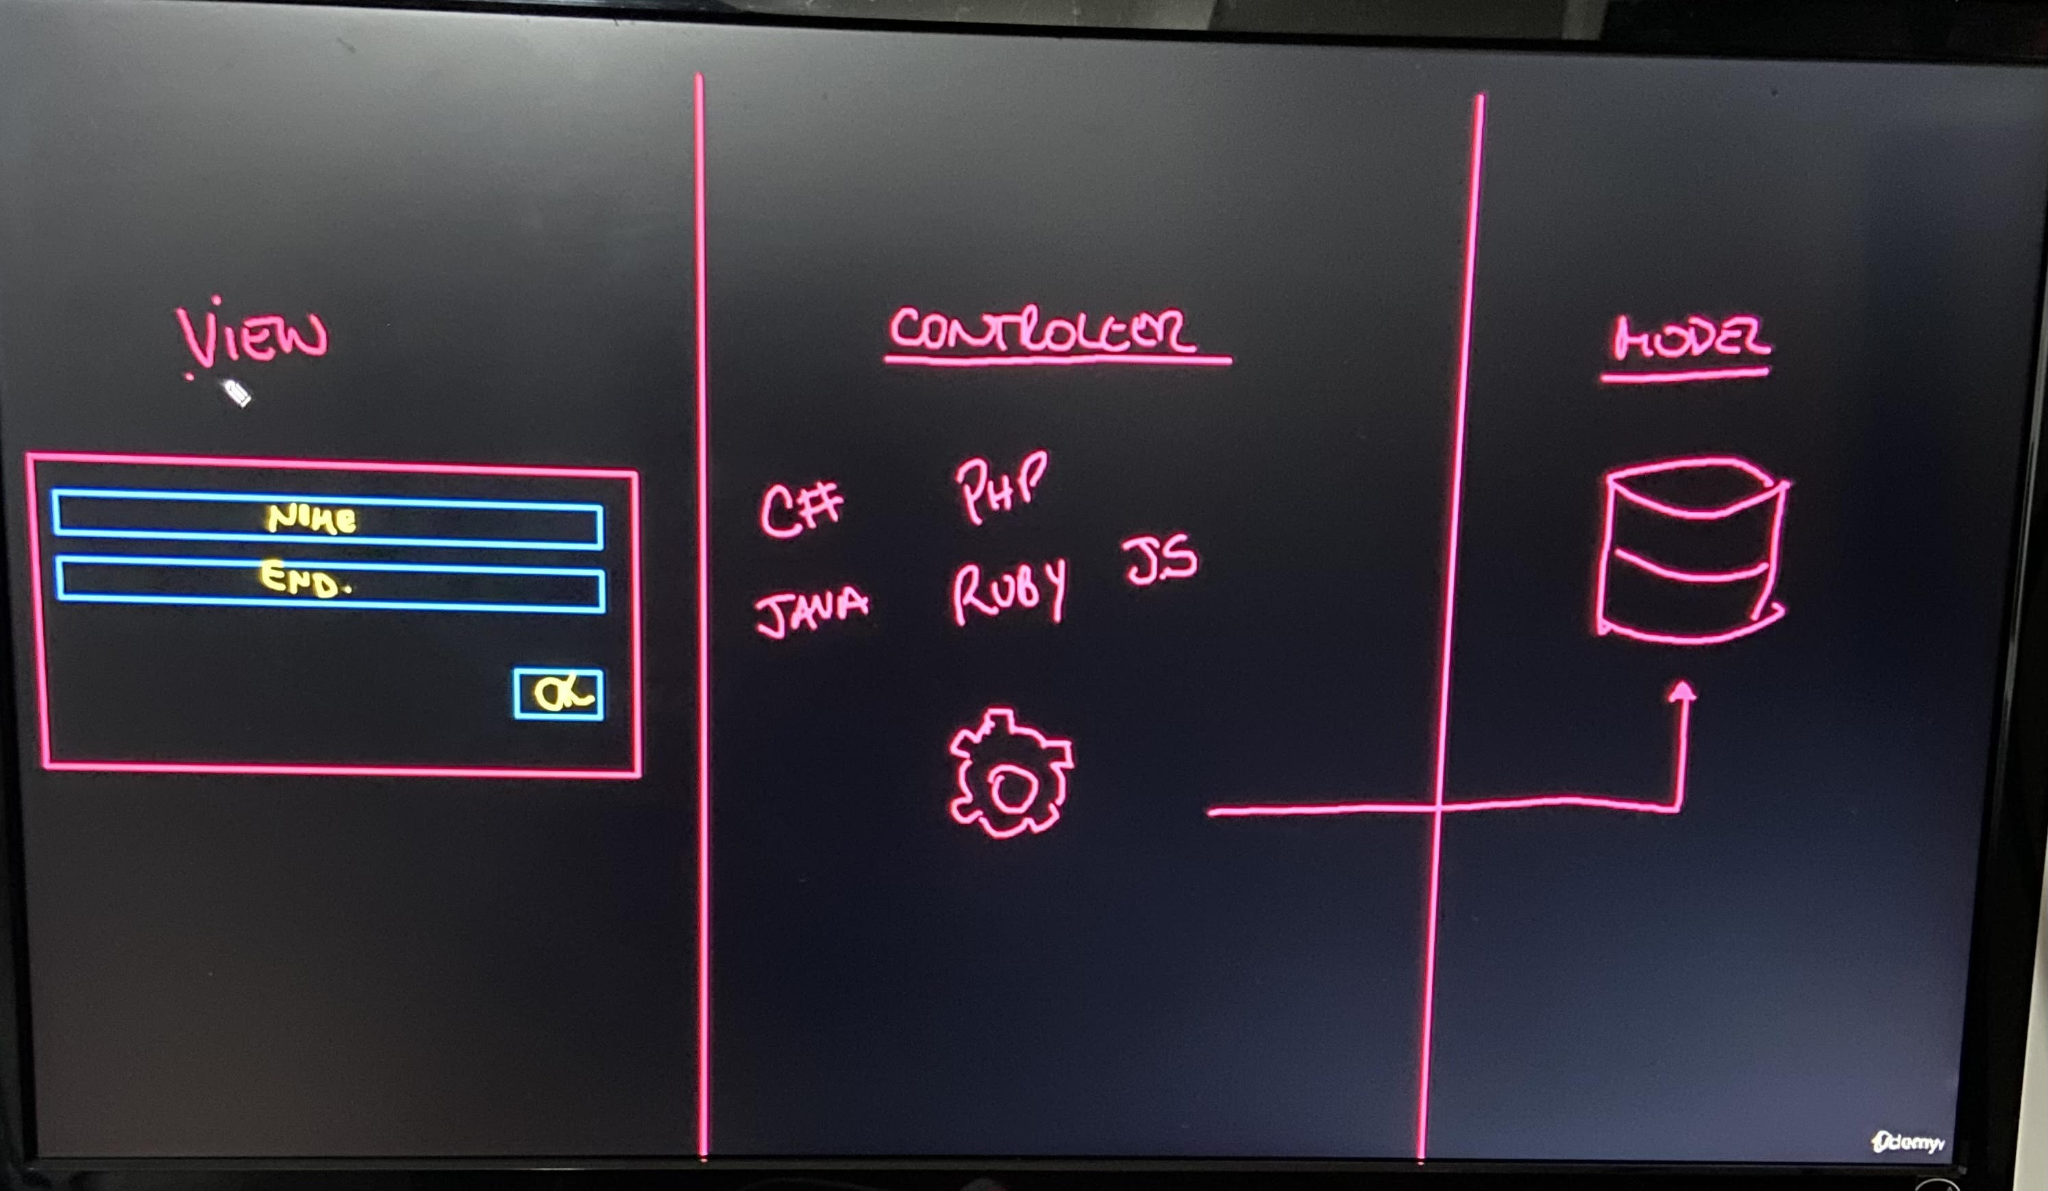 VIEW
NOME
END.
OK
CONTROLLER
C# PHP
JAVA RUBY JS
MODEL
Udemy